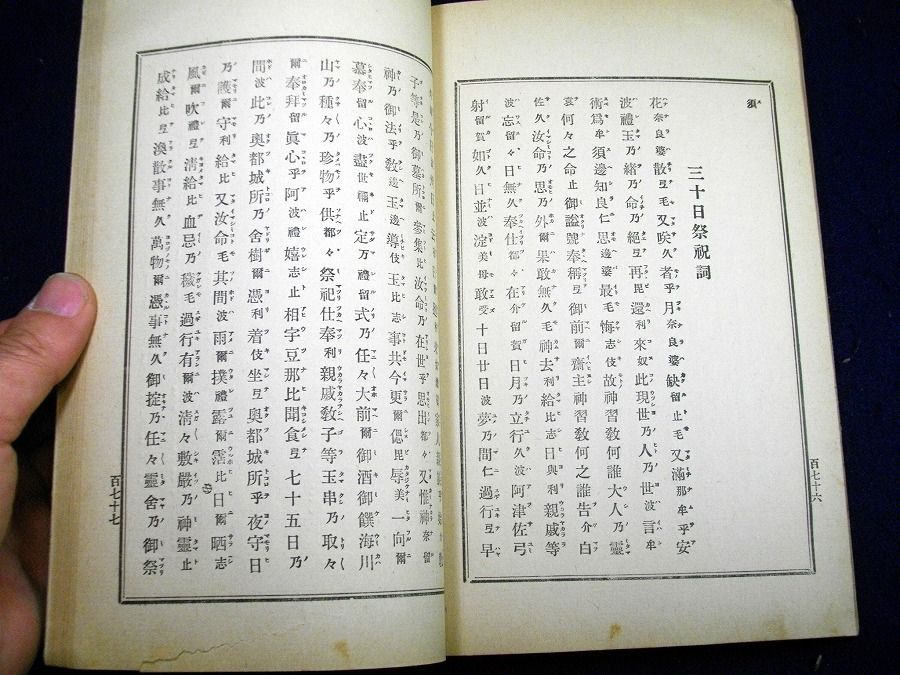 須
三十日祭祝詞
花奈良婆散氐毛又咲久者乎月奈良婆缺留止毛又滿那牟乎安
波禮玉乃緒乃命乃絕氐再毘還利來奴此現世乃人乃世波言牟
術爲牟須邊知良仁思邊婆最毛悔志伎故神習敎何誰大人乃靈
哀何々之命止御諡號奉稱氐御前爾齋主神習敎何之誰告介白
佐久汝命乃思乃外爾果敢無久毛神去利給比志日與利親戚等
波忘留々日無久奉仕都々在介留賀日月乃立行久波阿津佐弓
射留賀如久日並波淀美母敢受十日廿日波夢乃間仁過行氐早
百七十六
子等是乃御墓所爾參集比汝命乃在世乎思出都々又惟神奈留
神乃御法乎敎邊玉邊導伎玉比志事共今更爾偲毘辱美一向爾
慕奉留心波盡世禰止定万禮留式乃任々大前爾御酒御饌海川
山乃種々乃珍物乎供都々祭祀仕奉利親戚敎子等玉串乃取々
爾奉拜留眞心乎阿波禮嬉志止相宇豆那比聞食氐七十五日乃
間波此乃奧都城所乃舍樹爾憑利着伎坐氐奧都城所乎夜守日
乃護爾守利給比又汝命毛其間波雨爾撲禮露爾霑比日爾晒志
風爾吹禮氐淸給比血忌乃穢毛過行有爾波淸々敷嚴乃神靈止
成給比氐渙散事無久萬物爾憑事無久御掟乃任々靈舍乃御祭
百七十七